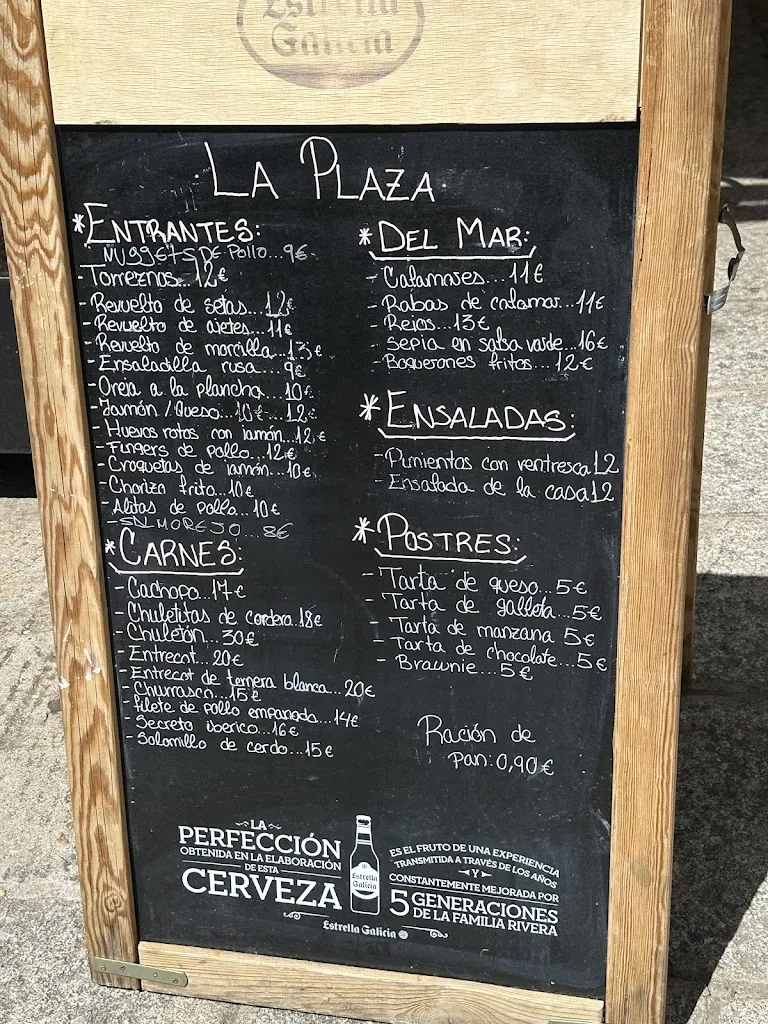 Estrella
Galicia
LA PLAZA
*ENTRANTES:
NUGGETS DE Pollo...9€
-Torreznos...12€
-Revuelto de setas...12€
-Revuelto de ajetes...11€
-Revuelto de morcilla...13€
-Ensaladilla rusa...9€
-Oreja a la plancha...10€
-Jamón/Queso...10€...12€
-Huevos rotos con jamón...12€
-Fingers de pollo...12€
-Croquetas de jamón...10€
-Chorizo frito...10€
-Alitas de pollo...10€
-SALMOREJO...8€
*CARNES:
-Cachopo...17€
-Chuletitas de cordero...18€
-Chuletón...30€
-Entrecot...20€
-Entrecot de ternera blanca...20€
-Churrasco...15€
-Filete de pollo empanado...14€
-Secreto iberico...16€
-Solomillo de cerdo...15€
*DEL MAR:
-Calamares...11€
-Rabas de calamar...11€
-Rejos...13€
-Sepia en salsa verde...16€
-Boquerones fritos...12€
*ENSALADAS:
-Pimientos con ventresca 12
-Ensalada de la casa 12
*POSTRES:
-Tarta de queso...5€
-Tarta de galleta...5€
-Tarta de manzana 5€
-Tarta de chocolate...5€
-Brownie...5€
Ración de
pan: 0,90€
LA
PERFECCIÓN
OBTENIDA EN LA ELABORACIÓN
DE ESTA
CERVEZA
Estrella
Galicia
ES EL FRUTO DE UNA EXPERIENCIA
TRANSMITIDA A TRAVÉS DE LOS AÑOS
Y
CONSTANTEMENTE MEJORADA POR
5 GENERACIONES
DE LA FAMILIA RIVERA
Estrella Galicia